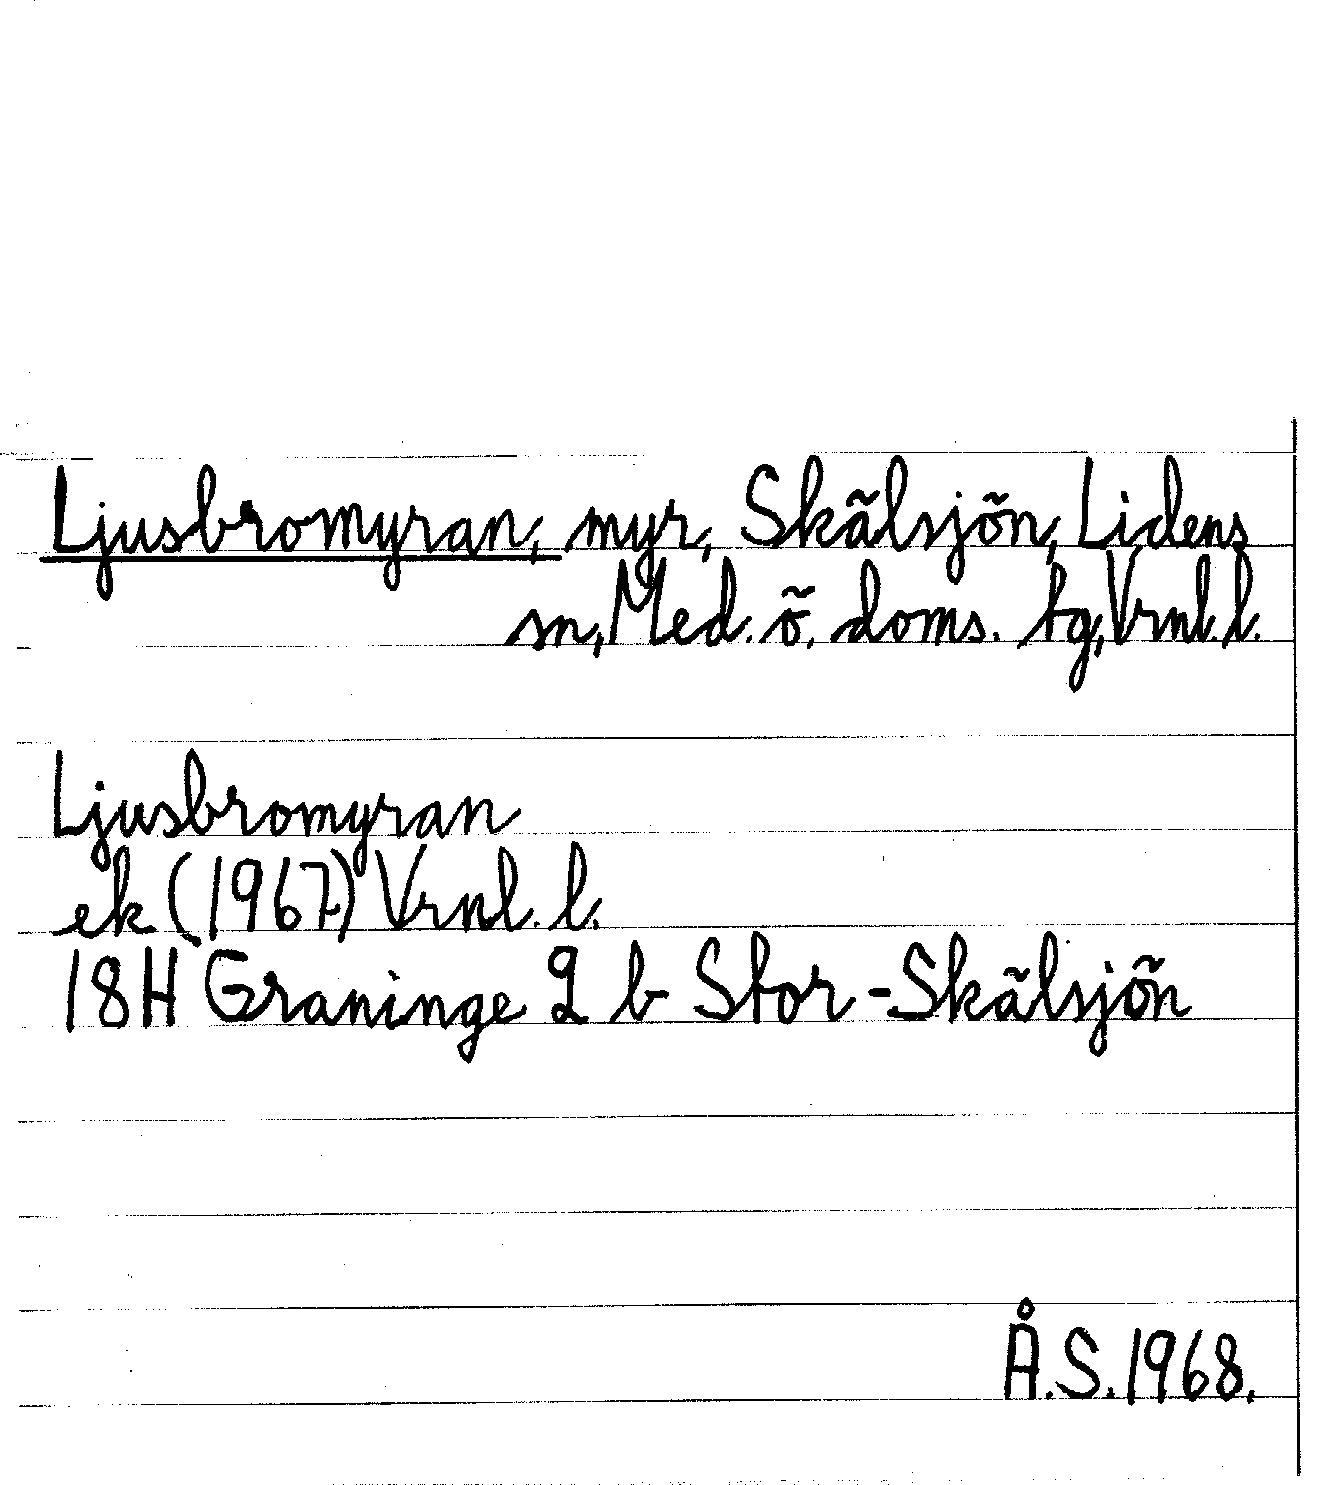 Ljusbromyran, myr, Skälsjön, Lidens
sn, Med. ö. doms. tg, Vrnl. l.
Ljusbromyran
ek (1967) Vrnl. l.
18H Graninge 2 b Stor-Skälsjön
Å.S. 1968.